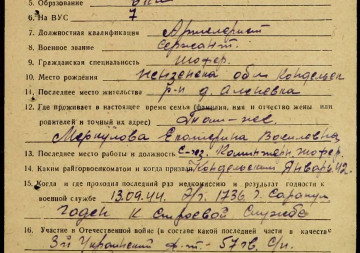 5. Образование
6. На ВУС 7
7. Должностная квалификация Артиллерист
8. Военное звание Сержант.
9. Гражданская специальность шофер.
10. Место рождения Пензенска обл Кондольск
11. Последнее место жительства р-н д. Аленевка
12. Где проживает в настоящее время семья (фамилия, имя и отчество жены или
родителей и точный их адрес)
Меркулова Екатерина Василевна
13. Последнее место работы и должность шофер.
14. Каким райгорвоенкоматом и когда призван Кондольский Январь 42.
15. Когда и где проходил последний раз медкомиссию и результат годности к
военной службе 13.09.44. Э/г. 1736 г. Сарапул
годен к строевой службе
16. Участие в Отечественной войне (в составе какой последней части в качестве
3й Украинский ф-т - 57 гв. с/п.